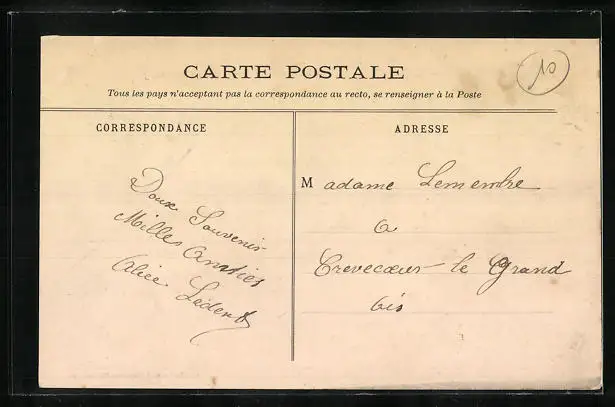 CARTE POSTALE
10
Tous les pays n'acceptant pas la correspondance au recto, se renseigner à la Poste
CORRESPONDANCE
ADRESSE
Doux Souvenir
Milles Amities
Alice
Madame
a
Crevecoeur le Grand